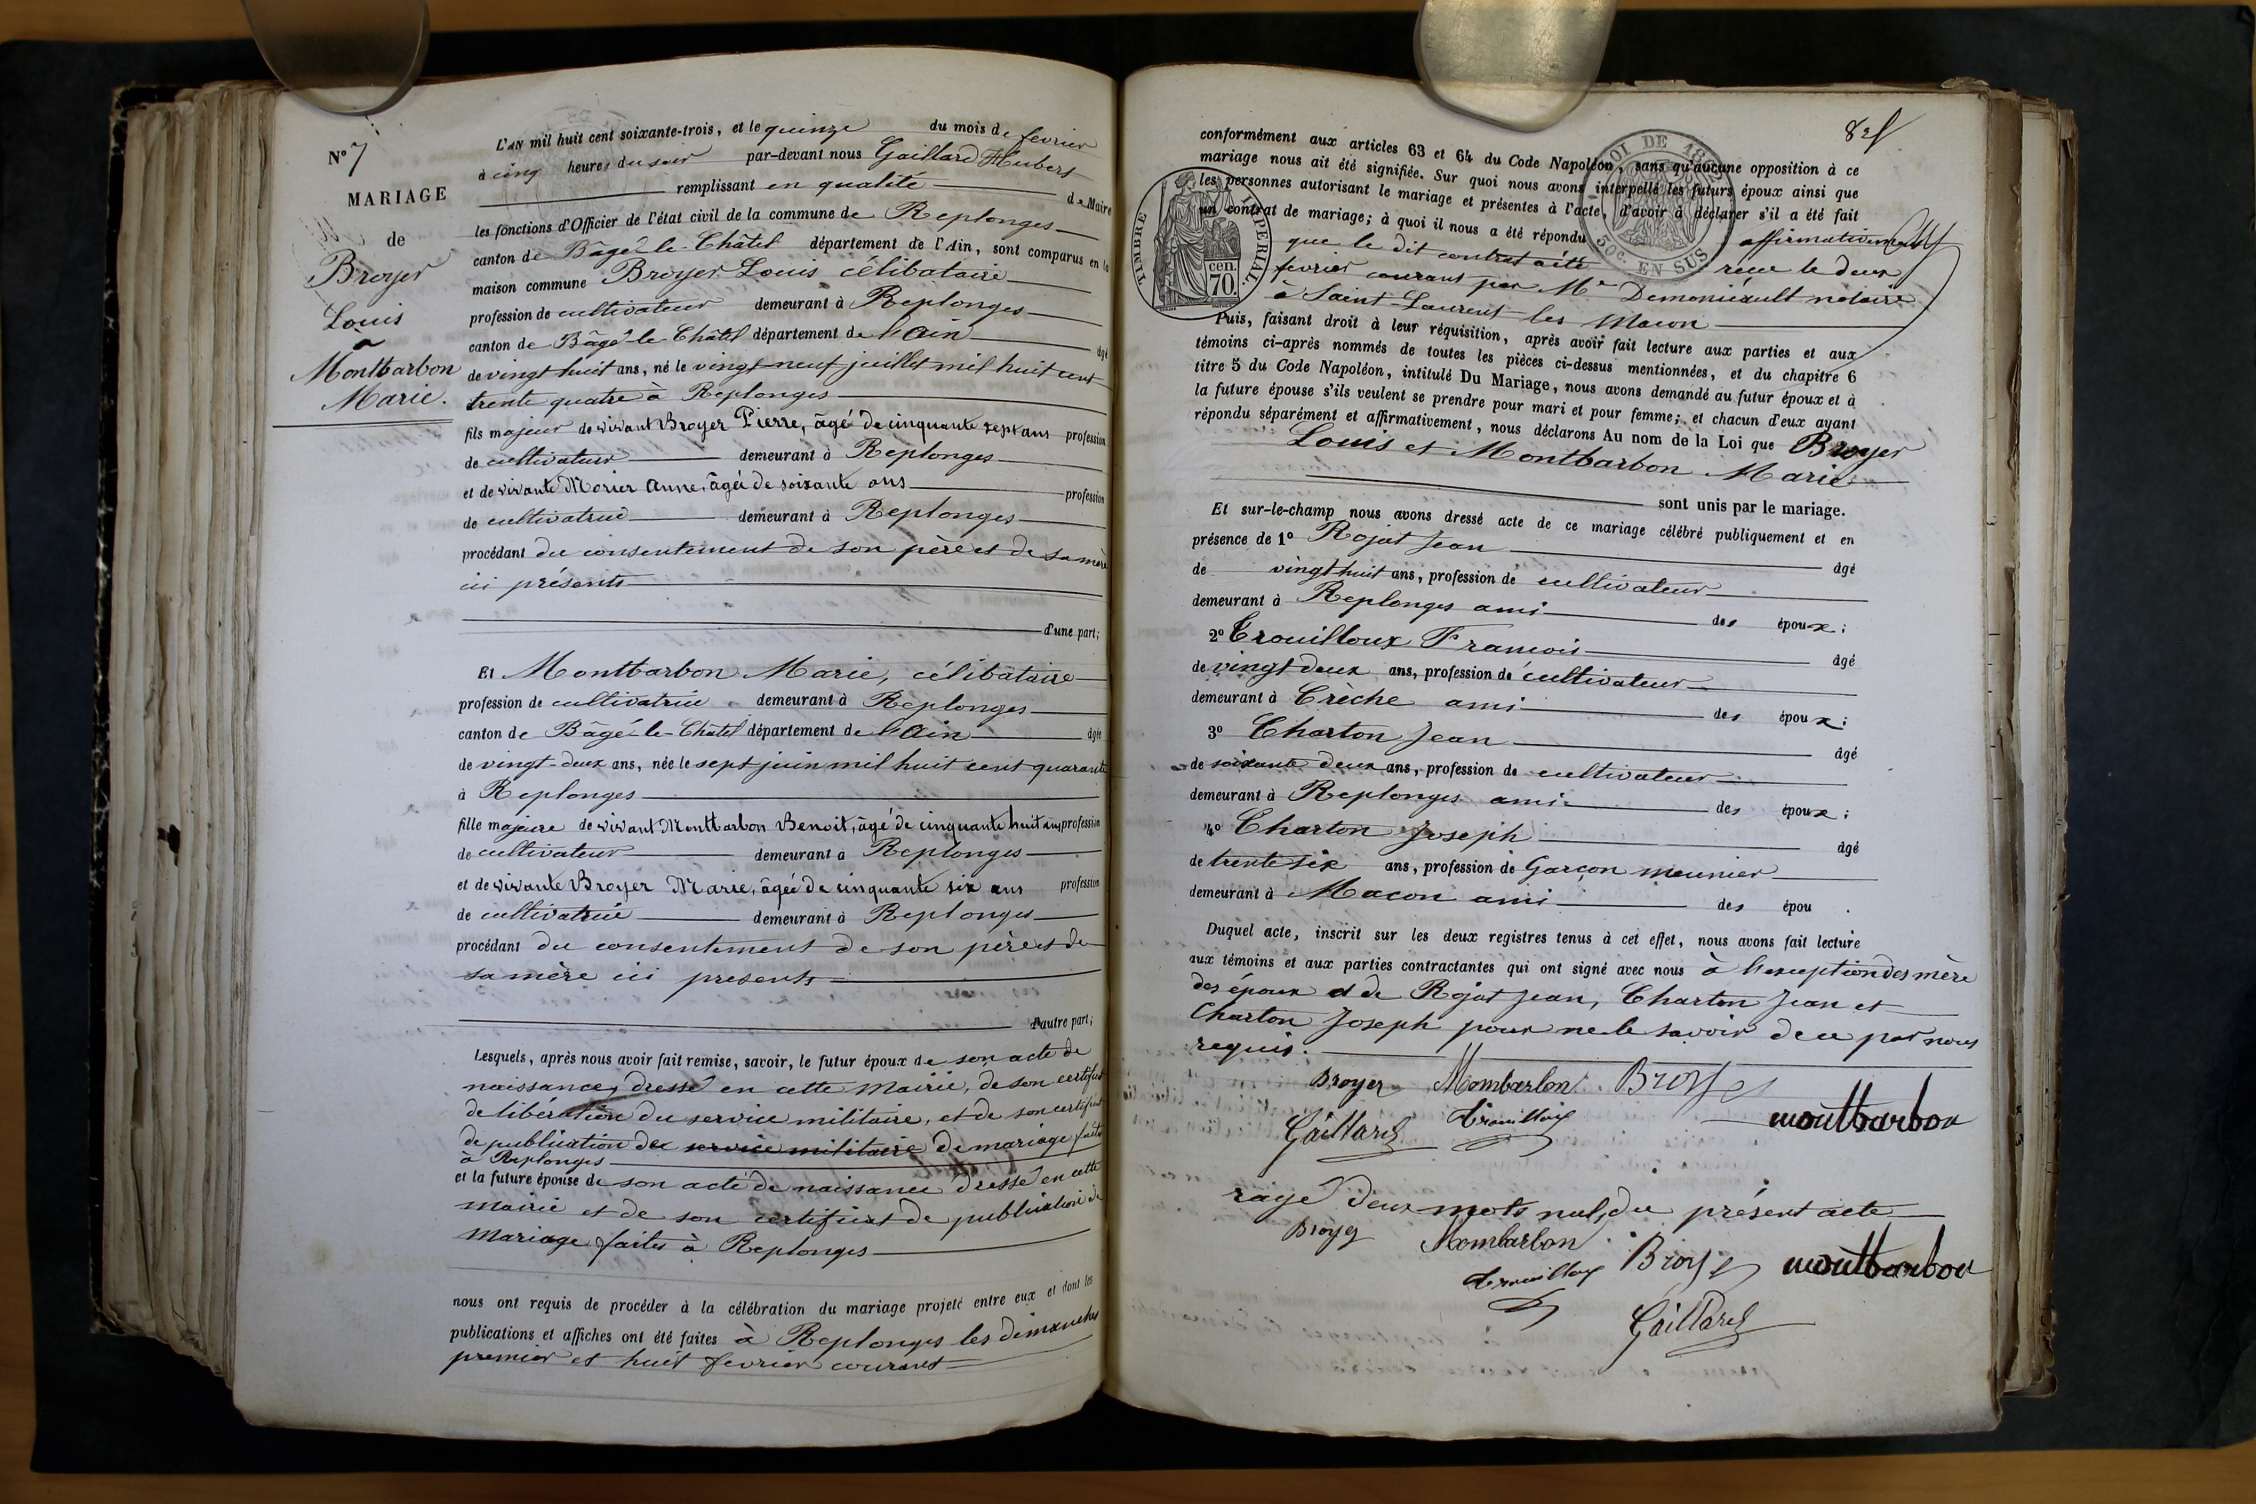 N° 7
MARIAGE
de
Broyer
Louis
à
Montbarbon
Marie.
L'AN mil huit cent soixante-trois, et le quinze du mois de fevrier
à cinq heures du soir par-devant nous Gaillard Hubert
remplissant en qualité de Maire
les fonctions d'Officier de l'état civil de la commune de Replonges
canton de Bâgé-le-Châtel département de l'Ain, sont comparus en la
maison commune Broyer Louis célibataire
profession de cultivateur demeurant à Replonges
canton de Bâgé-le-Châtel département de l'Ain âgé
de vingt huit ans, né le vingt neuf juillet mil huit cent
trente quatre à Replonges
fils majeur de vivant Broyer Pierre, âgé de cinquante sept ans profession
de cultivateur demeurant à Replonges
et de vivante Morier Anne, âgée de soixante ans profession
de cultivatrice demeurant à Replonges
procédant du consentement de son père et de sa mère
ici présents
d'une part;
Et Montbarbon Marie, célibataire
profession de cultivatrice demeurant à Replonges
canton de Bâgé-le-Châtel département de l'Ain âgée
de vingt-deux ans, née le sept juin mil huit cent quarante
à Replonges
fille majeure de vivant Montbarbon Benoit, âgé de cinquante huit ans profession
de cultivateur demeurant à Replonges
et de vivante Broyer Marie, âgée de cinquante six ans profession
de cultivatrice demeurant à Replonges
procédant du consentement de son père et de
sa mère ici presents
d'autre part;
Lesquels, après nous avoir fait remise, savoir, le futur époux de son acte de
naissance, dressé en cette mairie, de son certificat
de libération du service militaire, et de son certificat
de publication de service militaire de mariage faites
à Replonges
et la future épouse de son acte de naissance dressé en cette
mairie et de son certificat de publication de
mariage faites à Replonges
nous ont requis de procéder à la célébration du mariage projeté entre eux et dont les
publications et affiches ont été faites à Replonges les dimanches
premier et huit fevrier courant
82
conformément aux articles 63 et 64 du Code Napoléon, sans qu'aucune opposition à ce
mariage nous ait été signifiée. Sur quoi nous avons interpellé les futurs époux ainsi que
les personnes autorisant le mariage et présentes à l'acte, d'avoir à déclarer s'il a été fait
un contrat de mariage; à quoi il nous a été répondu affirmativement
LOI DE 1862
50c. EN SUS
TIMBRE IMPERIAL
cen.
70.
que le dit contrat a été recu le deux
fevrier courant par Me Demoniérault notaire
à Saint-Laurent-les Macon
Puis, faisant droit à leur réquisition, après avoir fait lecture aux parties et aux
témoins ci-après nommés de toutes les pièces ci-dessus mentionnées, et du chapitre 6
titre 5 du Code Napoléon, intitulé Du Mariage, nous avons demandé au futur époux et à
la future épouse s'ils veulent se prendre pour mari et pour femme; et chacun d'eux ayant
répondu séparément et affirmativement, nous déclarons Au nom de la Loi que Broyer
Louis et Montbarbon Marie
sont unis par le mariage.
Et sur-le-champ nous avons dressé acte de ce mariage célébré publiquement et en
présence de 1° Rojat Jean âgé
de vingt huit ans, profession de cultivateur
demeurant à Replonges ami des époux;
2° Trouilloux Francois âgé
de vingt deux ans, profession de cultivateur
demeurant à Crèche ami des époux;
3° Charton Jean âgé
de soixante deux ans, profession de cultivateur
demeurant à Replonges ami des époux;
4° Charton Joseph âgé
de trente six ans, profession de Garçon meunier
demeurant à Macon ami des épou .
Duquel acte, inscrit sur les deux registres tenus à cet effet, nous avons fait lecture
aux témoins et aux parties contractantes qui ont signé avec nous à l'exception des mère
des époux et de Rojat Jean, Charton Jean et
Charton Joseph pour ne le savoir de ce par nous
requis.
Broyer Mombarbon Broyer
montbarbon
Gaillard Trouilloux
rayé deux mots nul, du présent acte
Broyer Mombarbon Broyer montbarbon
Trouilloux
Gaillard